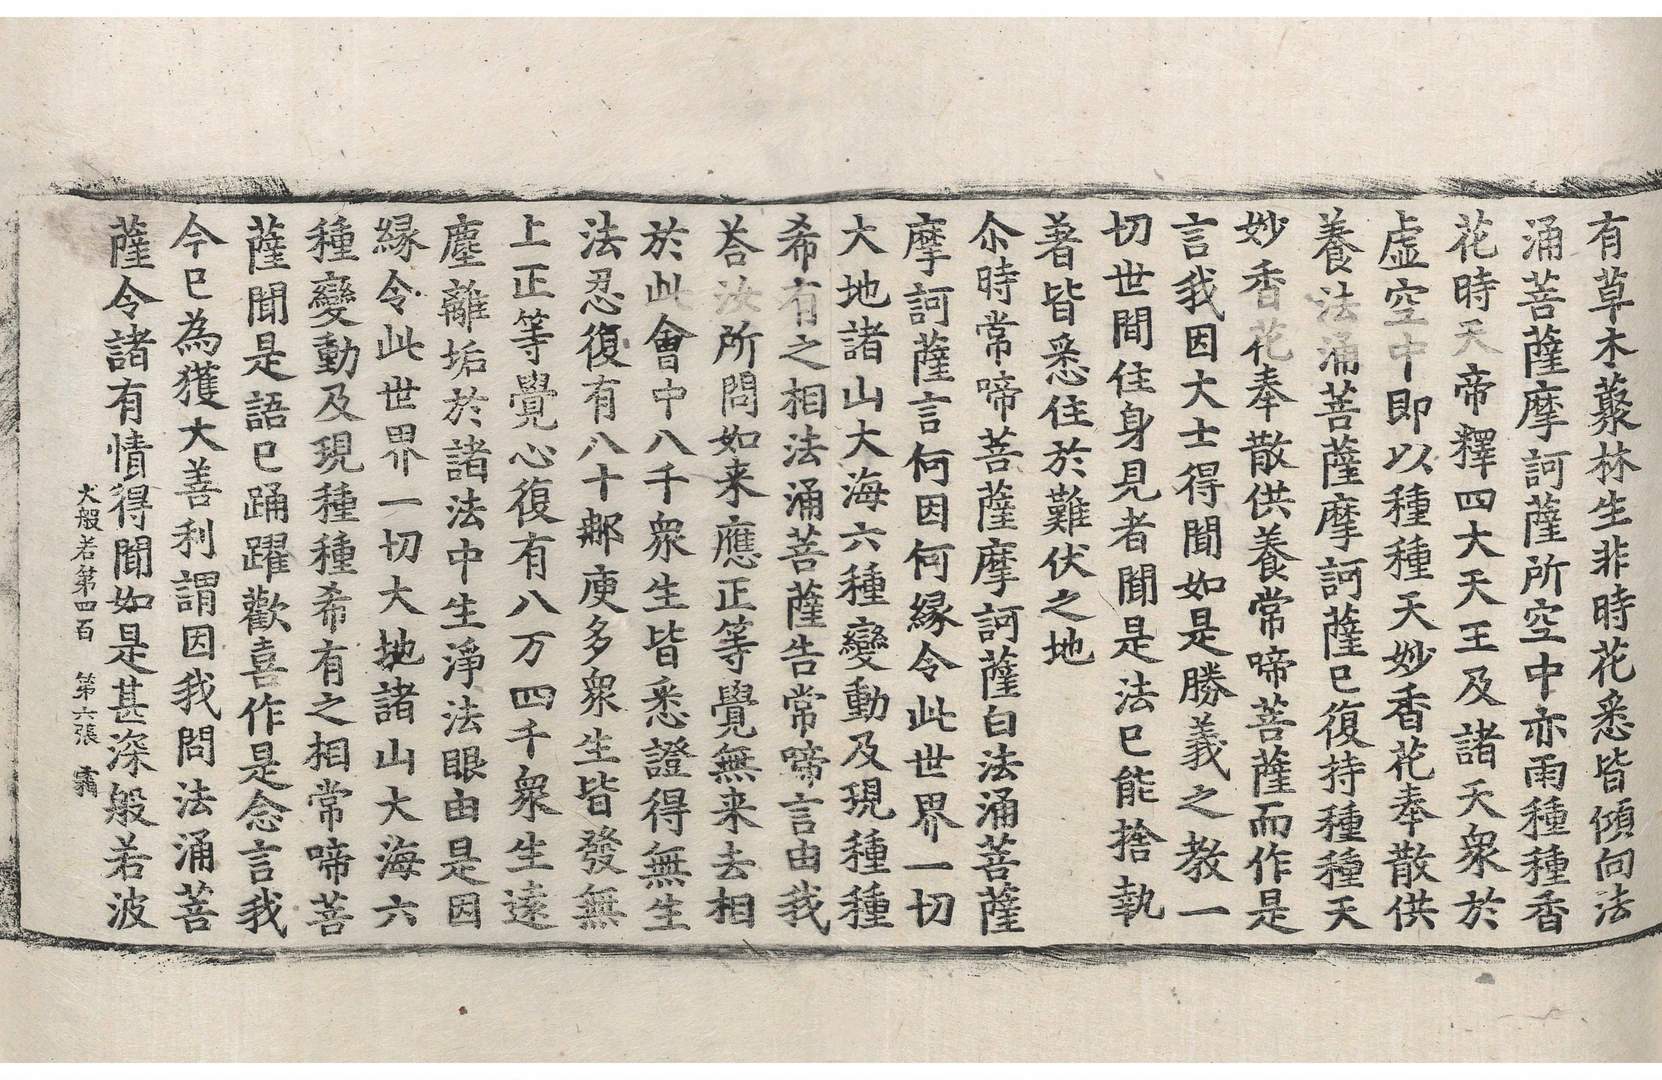 有草木蘩林生非時花悉皆傾向法
涌菩薩摩訶薩所空中亦雨種種香
花時天帝釋四大天王及諸天衆於
虛空中即以種種天妙香花奉散供
養法涌菩薩摩訶薩已復持種種天
妙香花奉散供養常啼菩薩而作是
言我因大士得聞如是勝義之教一
切世間住身見者聞是法已能捨執
著皆悉住於難伏之地
尒時常啼菩薩摩訶薩白法涌菩薩
摩訶薩言何因何緣令此世界一切
大地諸山大海六種變動及現種種
希有之相法涌菩薩告常啼言由我
荅汝所問如来應正等覺無来去相
於此會中八千衆生皆悉證得無生
法忍復有八十那庾多衆生皆發無
上正等覺心復有八万四千衆生遠
塵離垢於諸法中生淨法眼由是因
緣令此世界一切大地諸山大海六
種變動及現種種希有之相常啼菩
薩聞是語已踊躍歡喜作是念言我
今已為獲大善利謂因我問法涌菩
薩令諸有情得聞如是甚深般若波
大般若第四百 第六張 霜